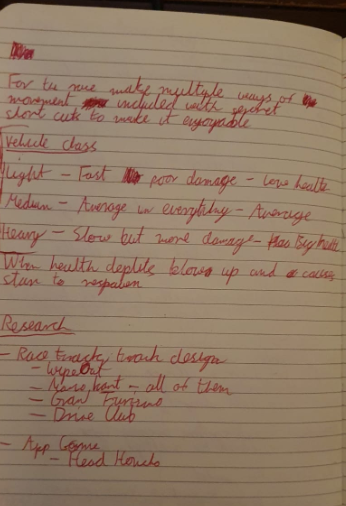 For the race make multiple ways of
movement included with secret
short cuts to make it enjoyable
Vehicle class
Light - Fast poor damage - Low health
Medium - Average in everything - Average
Heavy - Slow but more damage - health
When health deplits blows up and causes
stuns to respawn
Research
- Race track, track design
- WipeOut
- Mario kart - all of them
- Gran Turismo
- Drive Club
- App Game
- Head